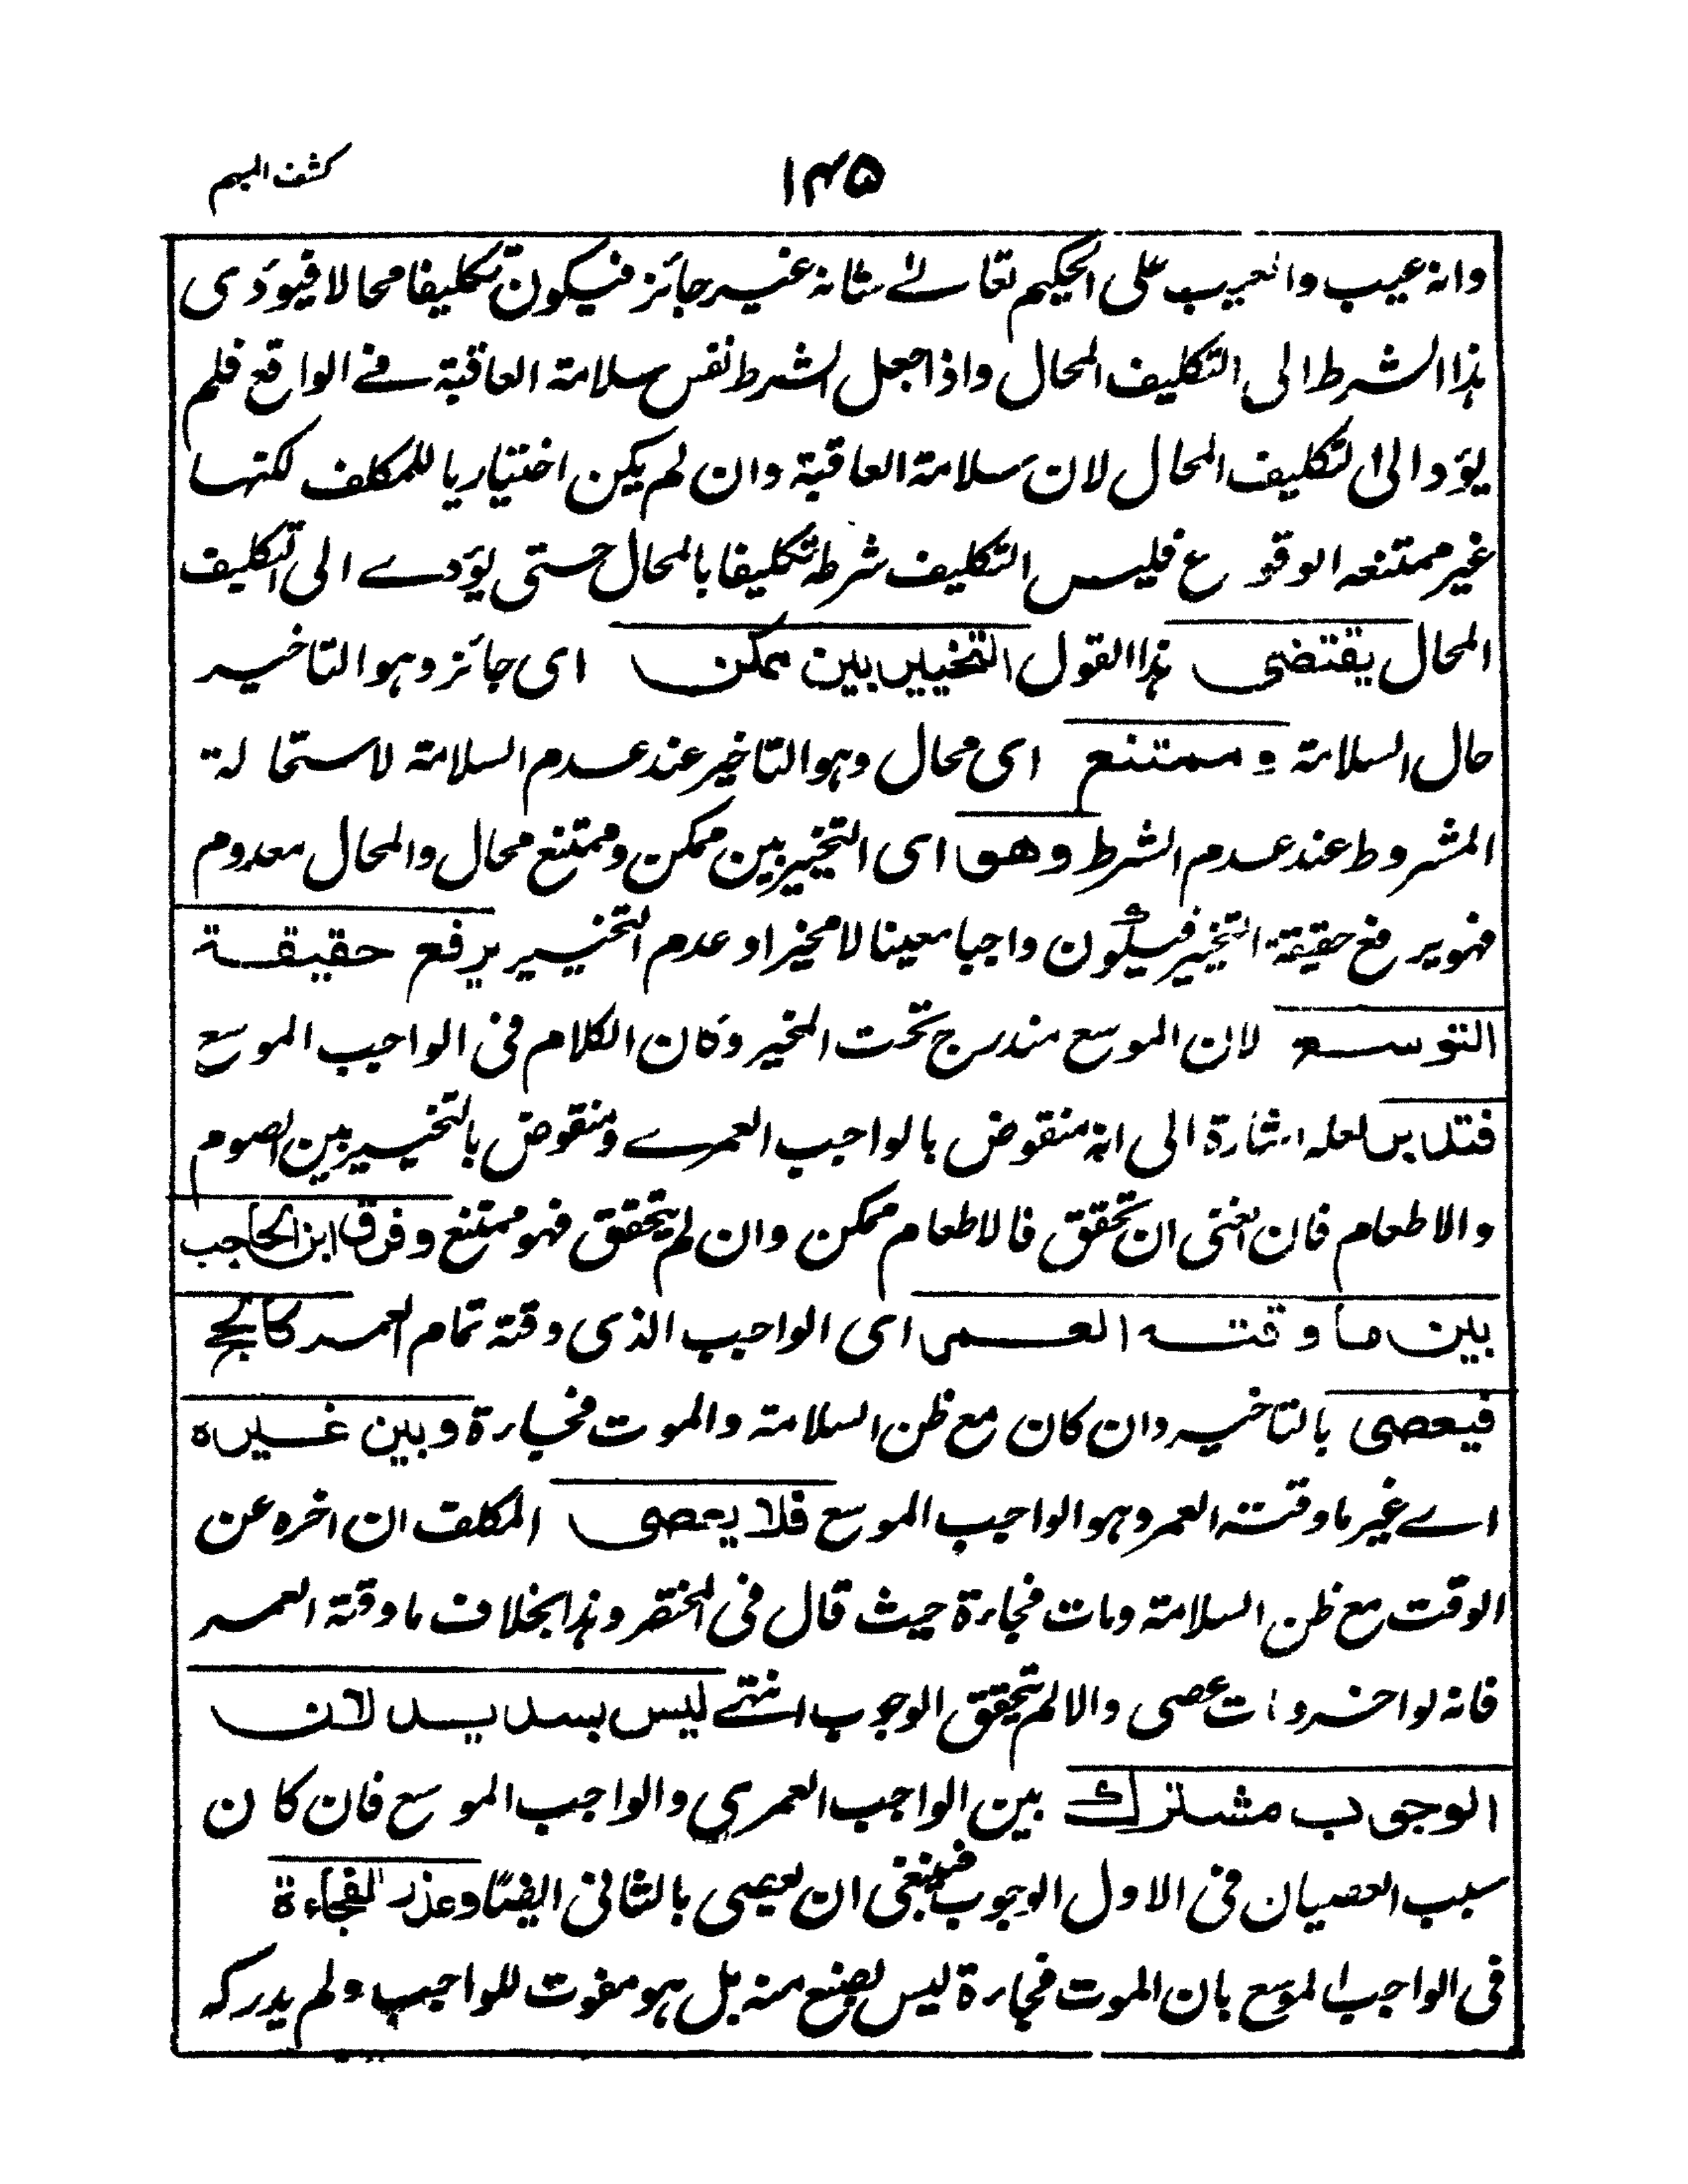 كشف المبهم
١٣٥
وانه عيب والعيب على الحكيم تعالى شانه غير جائز فيكون تكليفا محالا فيؤدى
هذا الشرط الى التكليف المحال واذا جعل الشرط نفس سلامة العاقبة فى الواقع فلم
يؤد الى التكليف المحال لان سلامة العاقبة وان لم يكن اختياريا للمكلف لكنها
غير ممتنعه الوقوع فليس التكليف شرطه تكليفا بالمحال حتى يؤدى الى التكليف
المحال يقتضى هذا القول التخيير بين ممكن اى جائز وهو التاخير
حال السلامة وممتنع اى محال وهو التاخير عند عدم السلامة لاستحالة
المشروط عند عدم الشرط وهو اى التخيير بين ممكن وممتنع محال والمحال معدوم
فهو يرفع حقيقة التخيير فيكون واجبا معينا لا مخيرا وعدم التخيير يرفع حقيقة
التوسع لان الموسع مندرج تحت المخير وكان الكلام فى الواجب الموسع
فتدبر لعله اشارة الى انه منقوض بالواجب العمرى ومنقوض بالتخيير بين الصوم
والاطعام فان الغنى ان تحقق فالاطعام ممكن وان لم يتحقق فهو ممتنع وفرق ابن الحاجب
بين ما وقته العمر اى الواجب الذى وقته تمام العمر كالحج
فيعصى بالتاخير وان كان مع ظن السلامة والموت فجاءة وبين غيره
اى غير ما وقته العمر وهو الواجب الموسع فلا يعصى المكلف ان اخره عن
الوقت مع ظن السلامة ومات فجاءة حيث قال فى المختصر وهذا بخلاف ما وقته العمر
فانه لو اخر ومات عصى والا لم يتحقق الوجوب انتهى ليس بسديد لان
الوجوب مشترك بين الواجب العمري والواجب الموسع فان كان
سبب العصيان فى الاول الوجوب فينبغى ان يعصى بالثانى ايضا وعذر الفجاءة
فى الواجب الموسع بان الموت فجاءة ليس بصنع منه بل هو مفوت للواجب ولم يدركه